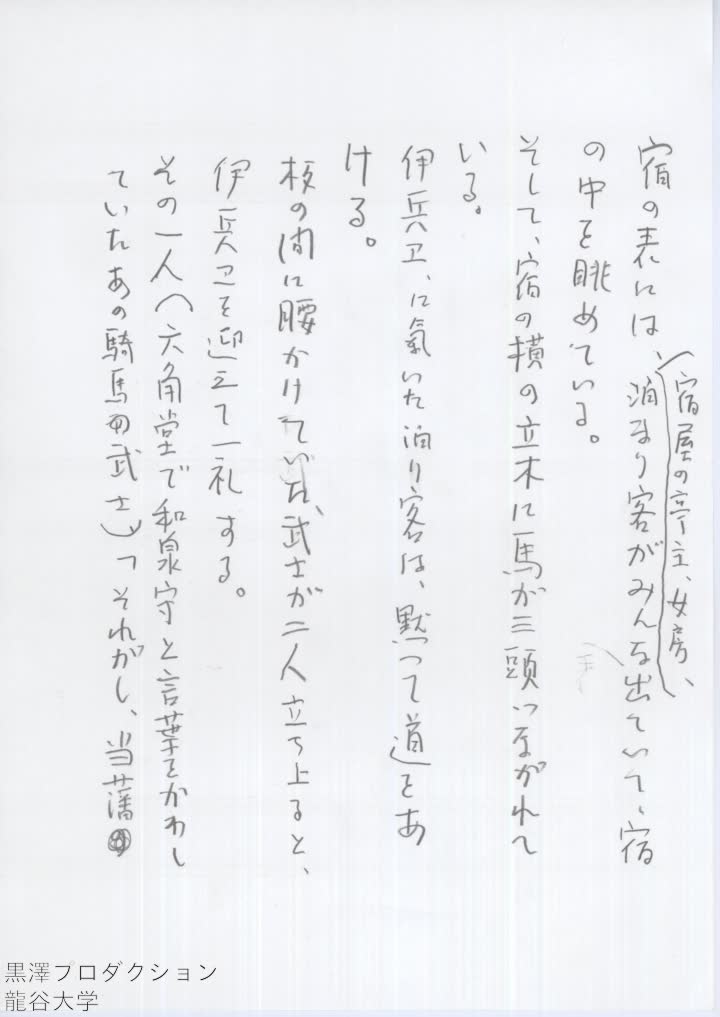 宿の表には、泊まり客がみんな出ていて、宿
宿屋の亭主、女房、
の中を眺めている。
そして、宿の横の立木に馬が三頭つながれて
いる。
伊兵卫、に氣いた泊り客は、黙って道をあ
ける。
板の間に腰かけていた、武士が二人立ち上ると、
伊兵卫を迎えて一礼する。
その一人(六角堂で和泉守と言葉をかわし
ていたあの騎馬の武士)「それがし、当藩
黒澤プロダクション
龍谷大学